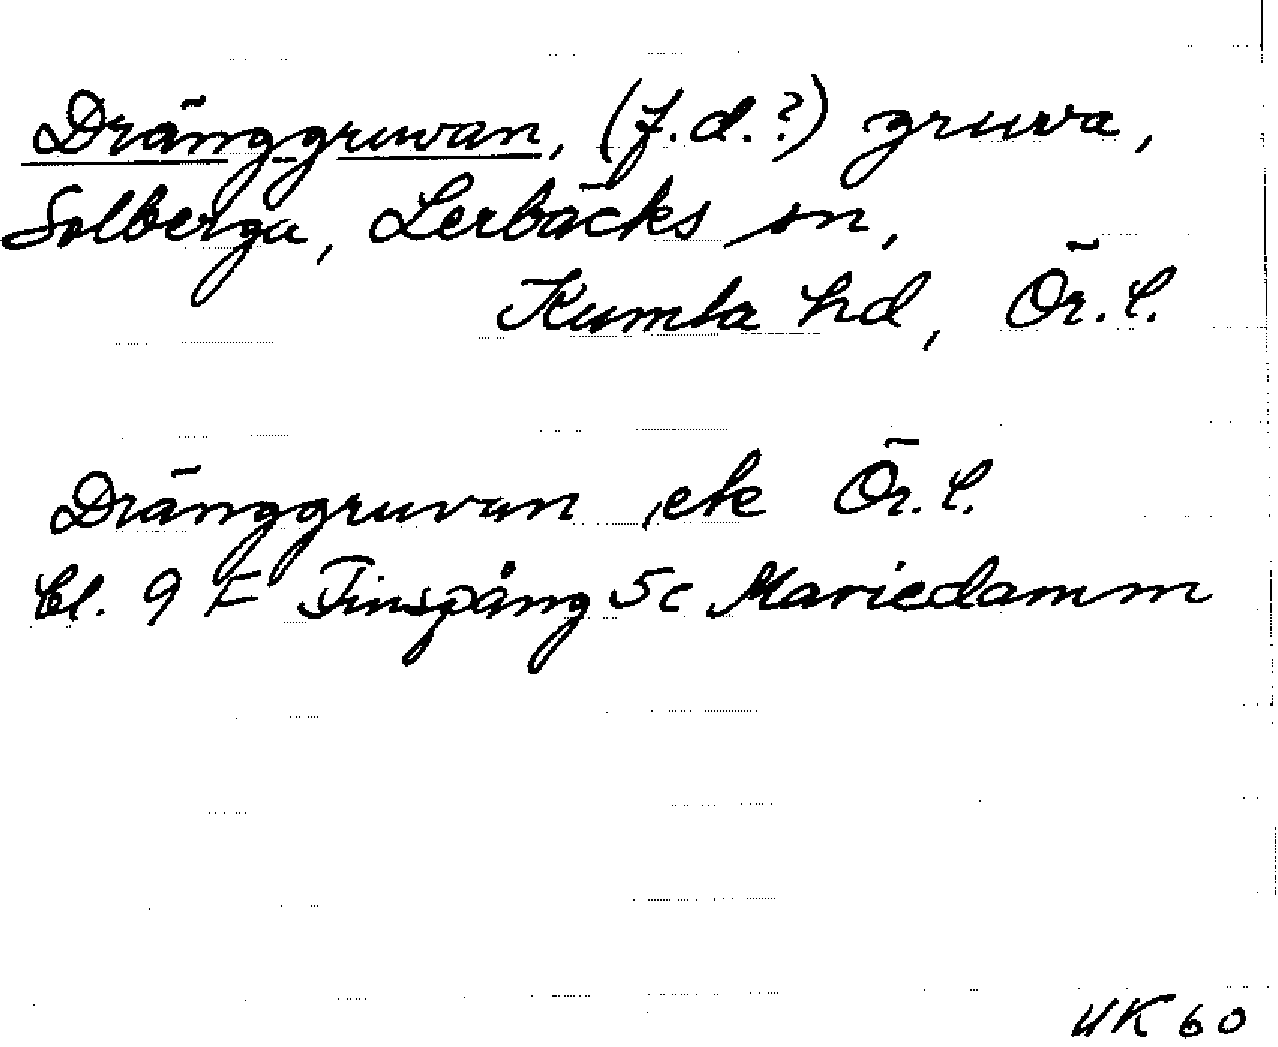 Dränggruvan, (f.d.?) gruva,
Solberga, Lerbäcks sn,
Kumla hd, Ör. l.
Dränggruvan, ek Ör. l.
Bl. 9 F Finspång 5c Mariedamm
UK 60